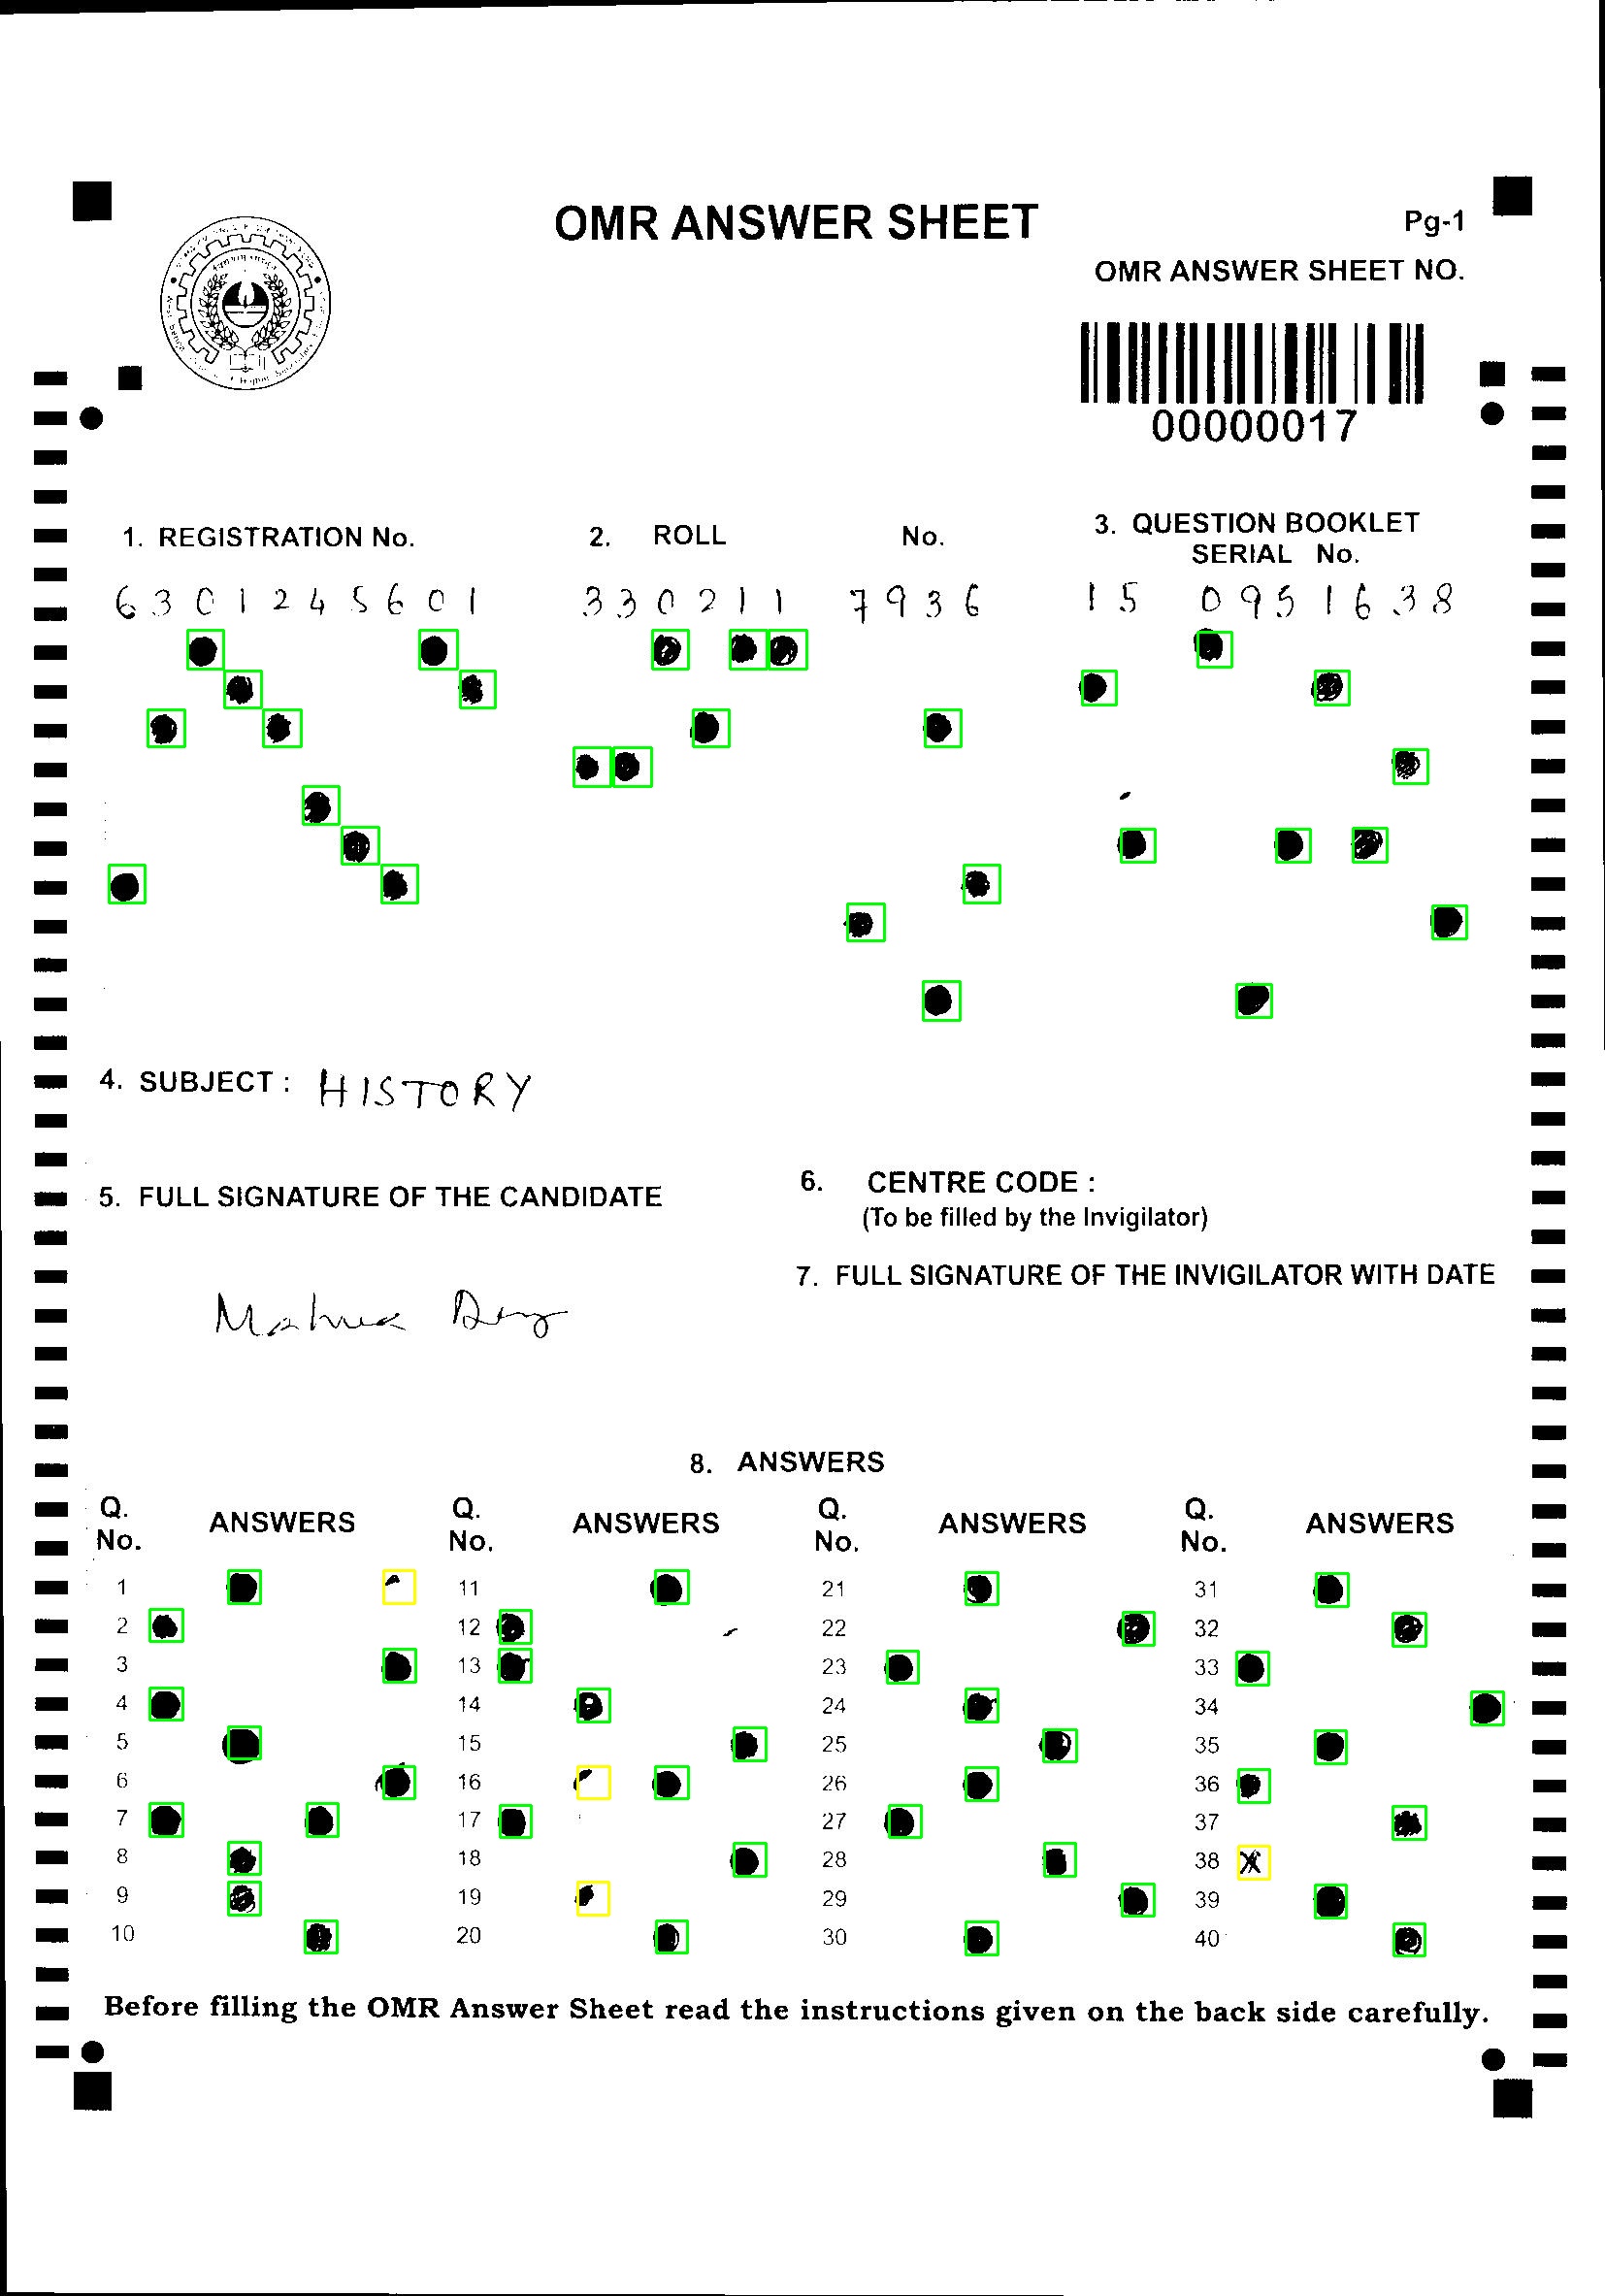 OMR ANSWER SHEET
Pg-1
OMR ANSWER SHEET NO.
00000017
1. REGISTRATION No.
2. ROLL No.
3. QUESTION BOOKLET
SERIAL No.
6301245601
330211 7936
15 0951638
4. SUBJECT : HISTORY
5. FULL SIGNATURE OF THE CANDIDATE
6. CENTRE CODE :
(To be filled by the Invigilator)
7. FULL SIGNATURE OF THE INVIGILATOR WITH DATE
Mahua Dey
8. ANSWERS
Q. No. ANSWERS Q. No. ANSWERS Q. No. ANSWERS Q. No. ANSWERS
1 11 21 31
2 12 22 32
3 13 23 33
4 14 24 34
5 15 25 35
6 16 26 36
7 17 27 37
8 18 28 38
9 19 29 39
10 20 30 40
Before filling the OMR Answer Sheet read the instructions given on the back side carefully.